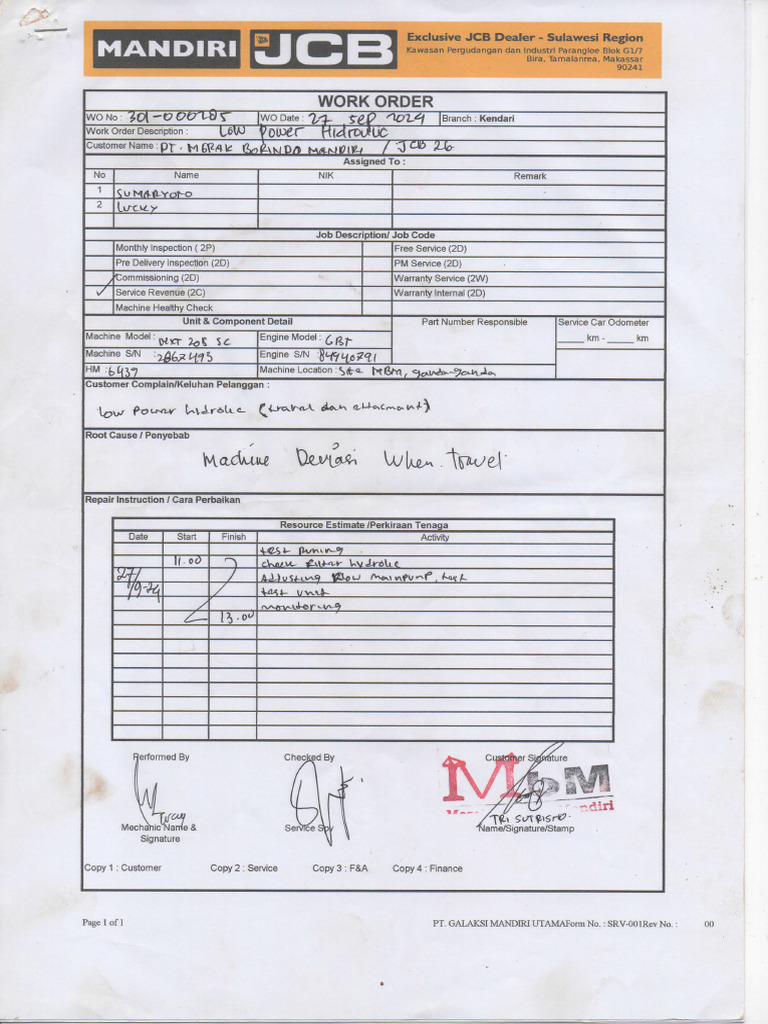 MANDIRI JCB
Exclusive JCB Dealer - Sulawesi Region
Kawasan Pergudangan dan Industri Parangloe Blok G1/7
Bira, Tamalanrea, Makassar
90241
WORK ORDER
WO No : 301-000285 WO Date : 27 Sep 2024 Branch : Kendari
Work Order Description : Low Power Hidraulic
Customer Name : PT. MERAK BORINDO MANDIRI / JCB 26
Assigned To :
No Name NIK Remark
1 SUMARYONO
2 LUCKY
Job Description/ Job Code
Monthly Inspection ( 2P) Free Service (2D)
Pre Delivery Inspection (2D) PM Service (2D)
Commissioning (2D) Warranty Service (2W)
✓ Service Revenue (2C) Warranty Internal (2D)
Machine Healthy Check
Unit & Component Detail Part Number Responsible Service Car Odometer
Machine Model : NXT 205 SC Engine Model : 6BT _____ km - _____ km
Machine S/N : 2867493 Engine S/N : 84940791
HM : 6439 Machine Location : Site MBM,
Customer Complain/Keluhan Pelanggan :
Low Power hidrolic (travel dan attacmant)
Root Cause / Penyebab
Machine Deviasi When travel
Repair Instruction / Cara Perbaikan
Resource Estimate /Perkiraan Tenaga
Date Start Finish Activity
test runing
11.00 check filter hydrolic
27/9-24 Adjusting flow mainpump, test
test unit
monitoring
13.00
Performed By Checked By Customer Signature
MbM
Mandiri
Lucky TRI SUTRISNO.
Mechanic Name & Signature Service Spv Name/Signature/Stamp
Copy 1 : Customer Copy 2 : Service Copy 3 : F&A Copy 4 : Finance
Page 1 of 1 PT. GALAKSI MANDIRI UTAMAForm No. : SRV-001Rev No. : 00